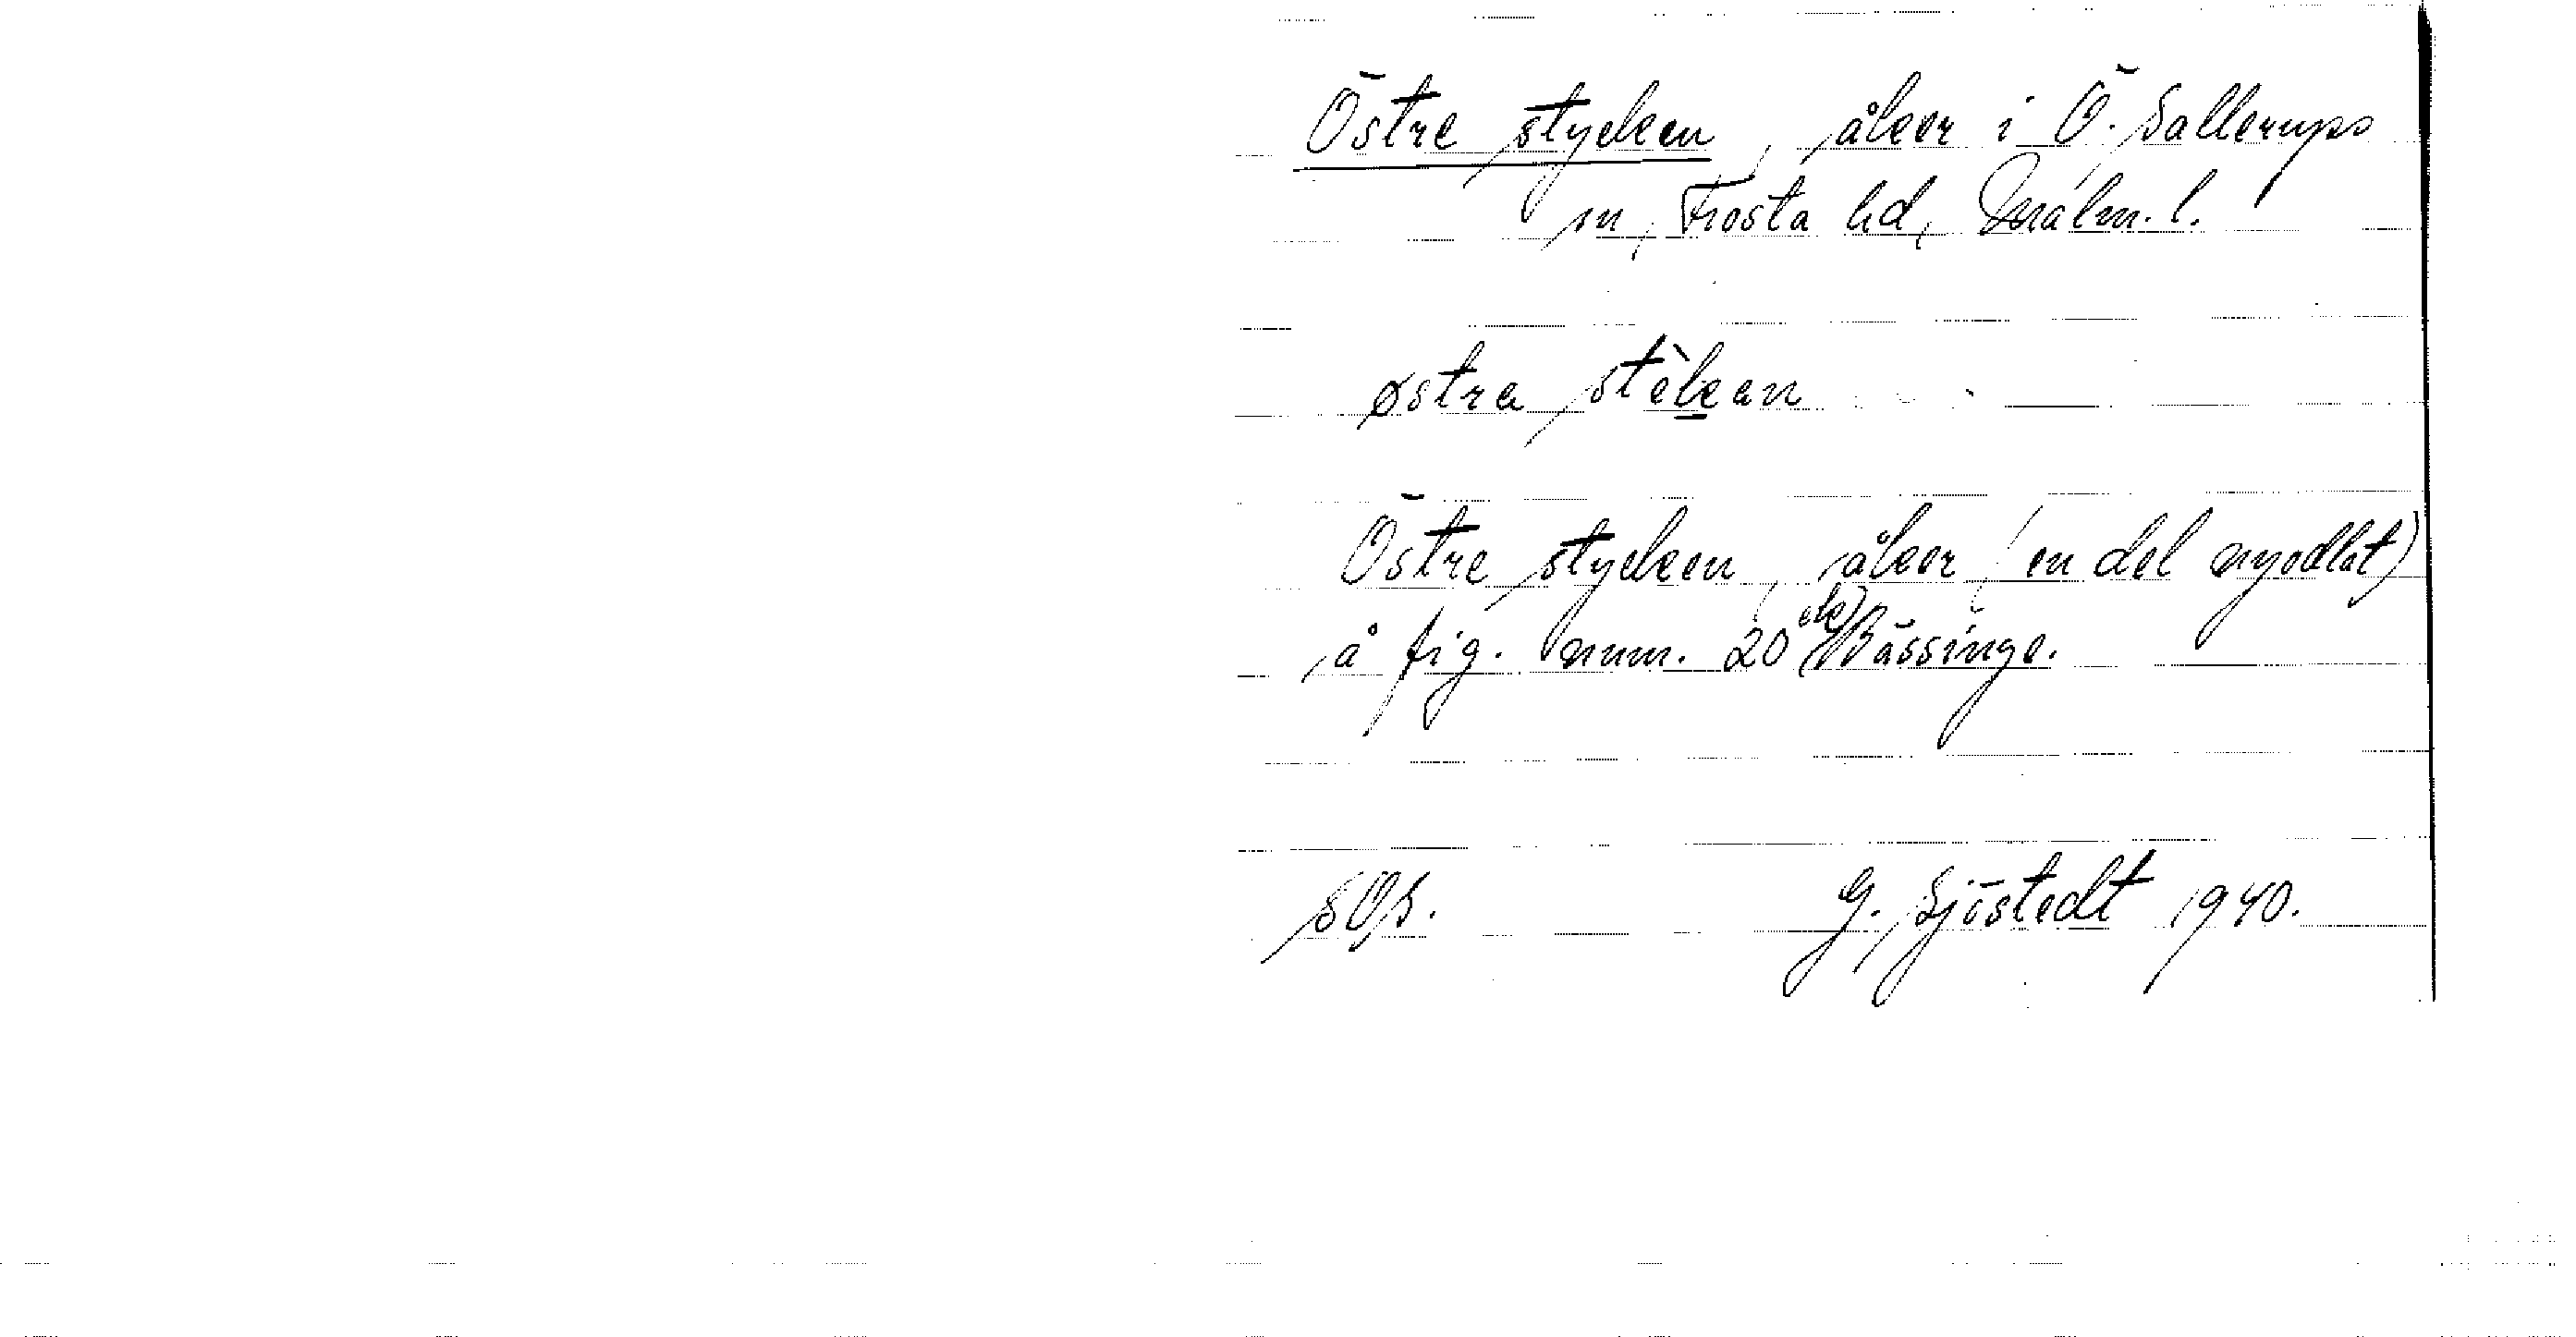 Östre stycken, åker i Ö. Sallerups
sn, Frosta hd, Malm. l.
østra stèkan
Östre stycken, åker (en del nyodlat)
å fig. num. 20 (ek) Bässinge.
SOs.
G. Sjöstedt 1940.